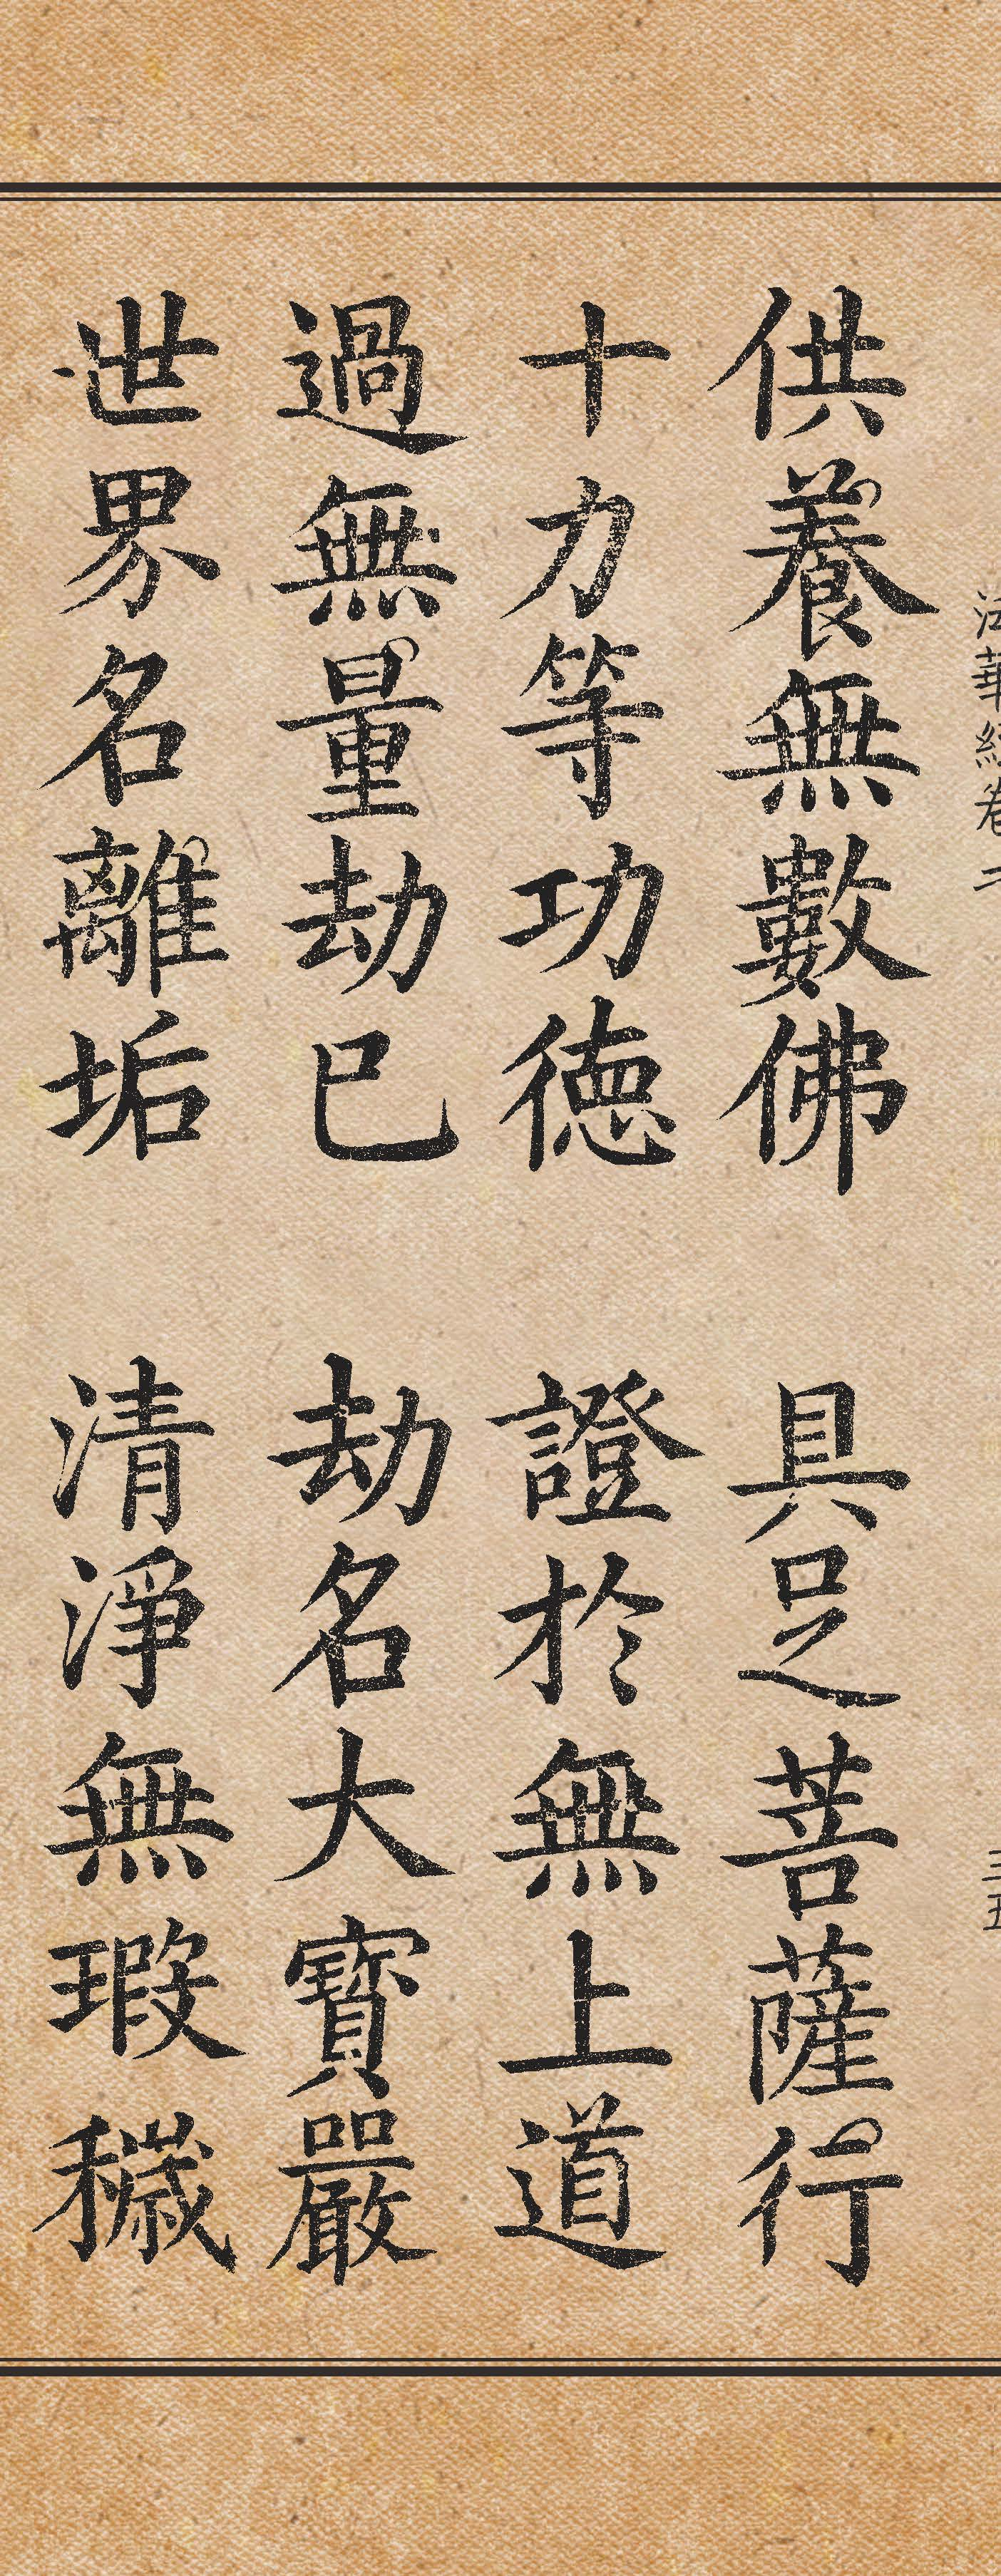 法華經卷二
三五
供養無數佛 具足菩薩行
十力等功德 證於無上道
過無量劫已 劫名大寶嚴
世界名離垢 清淨無瑕穢